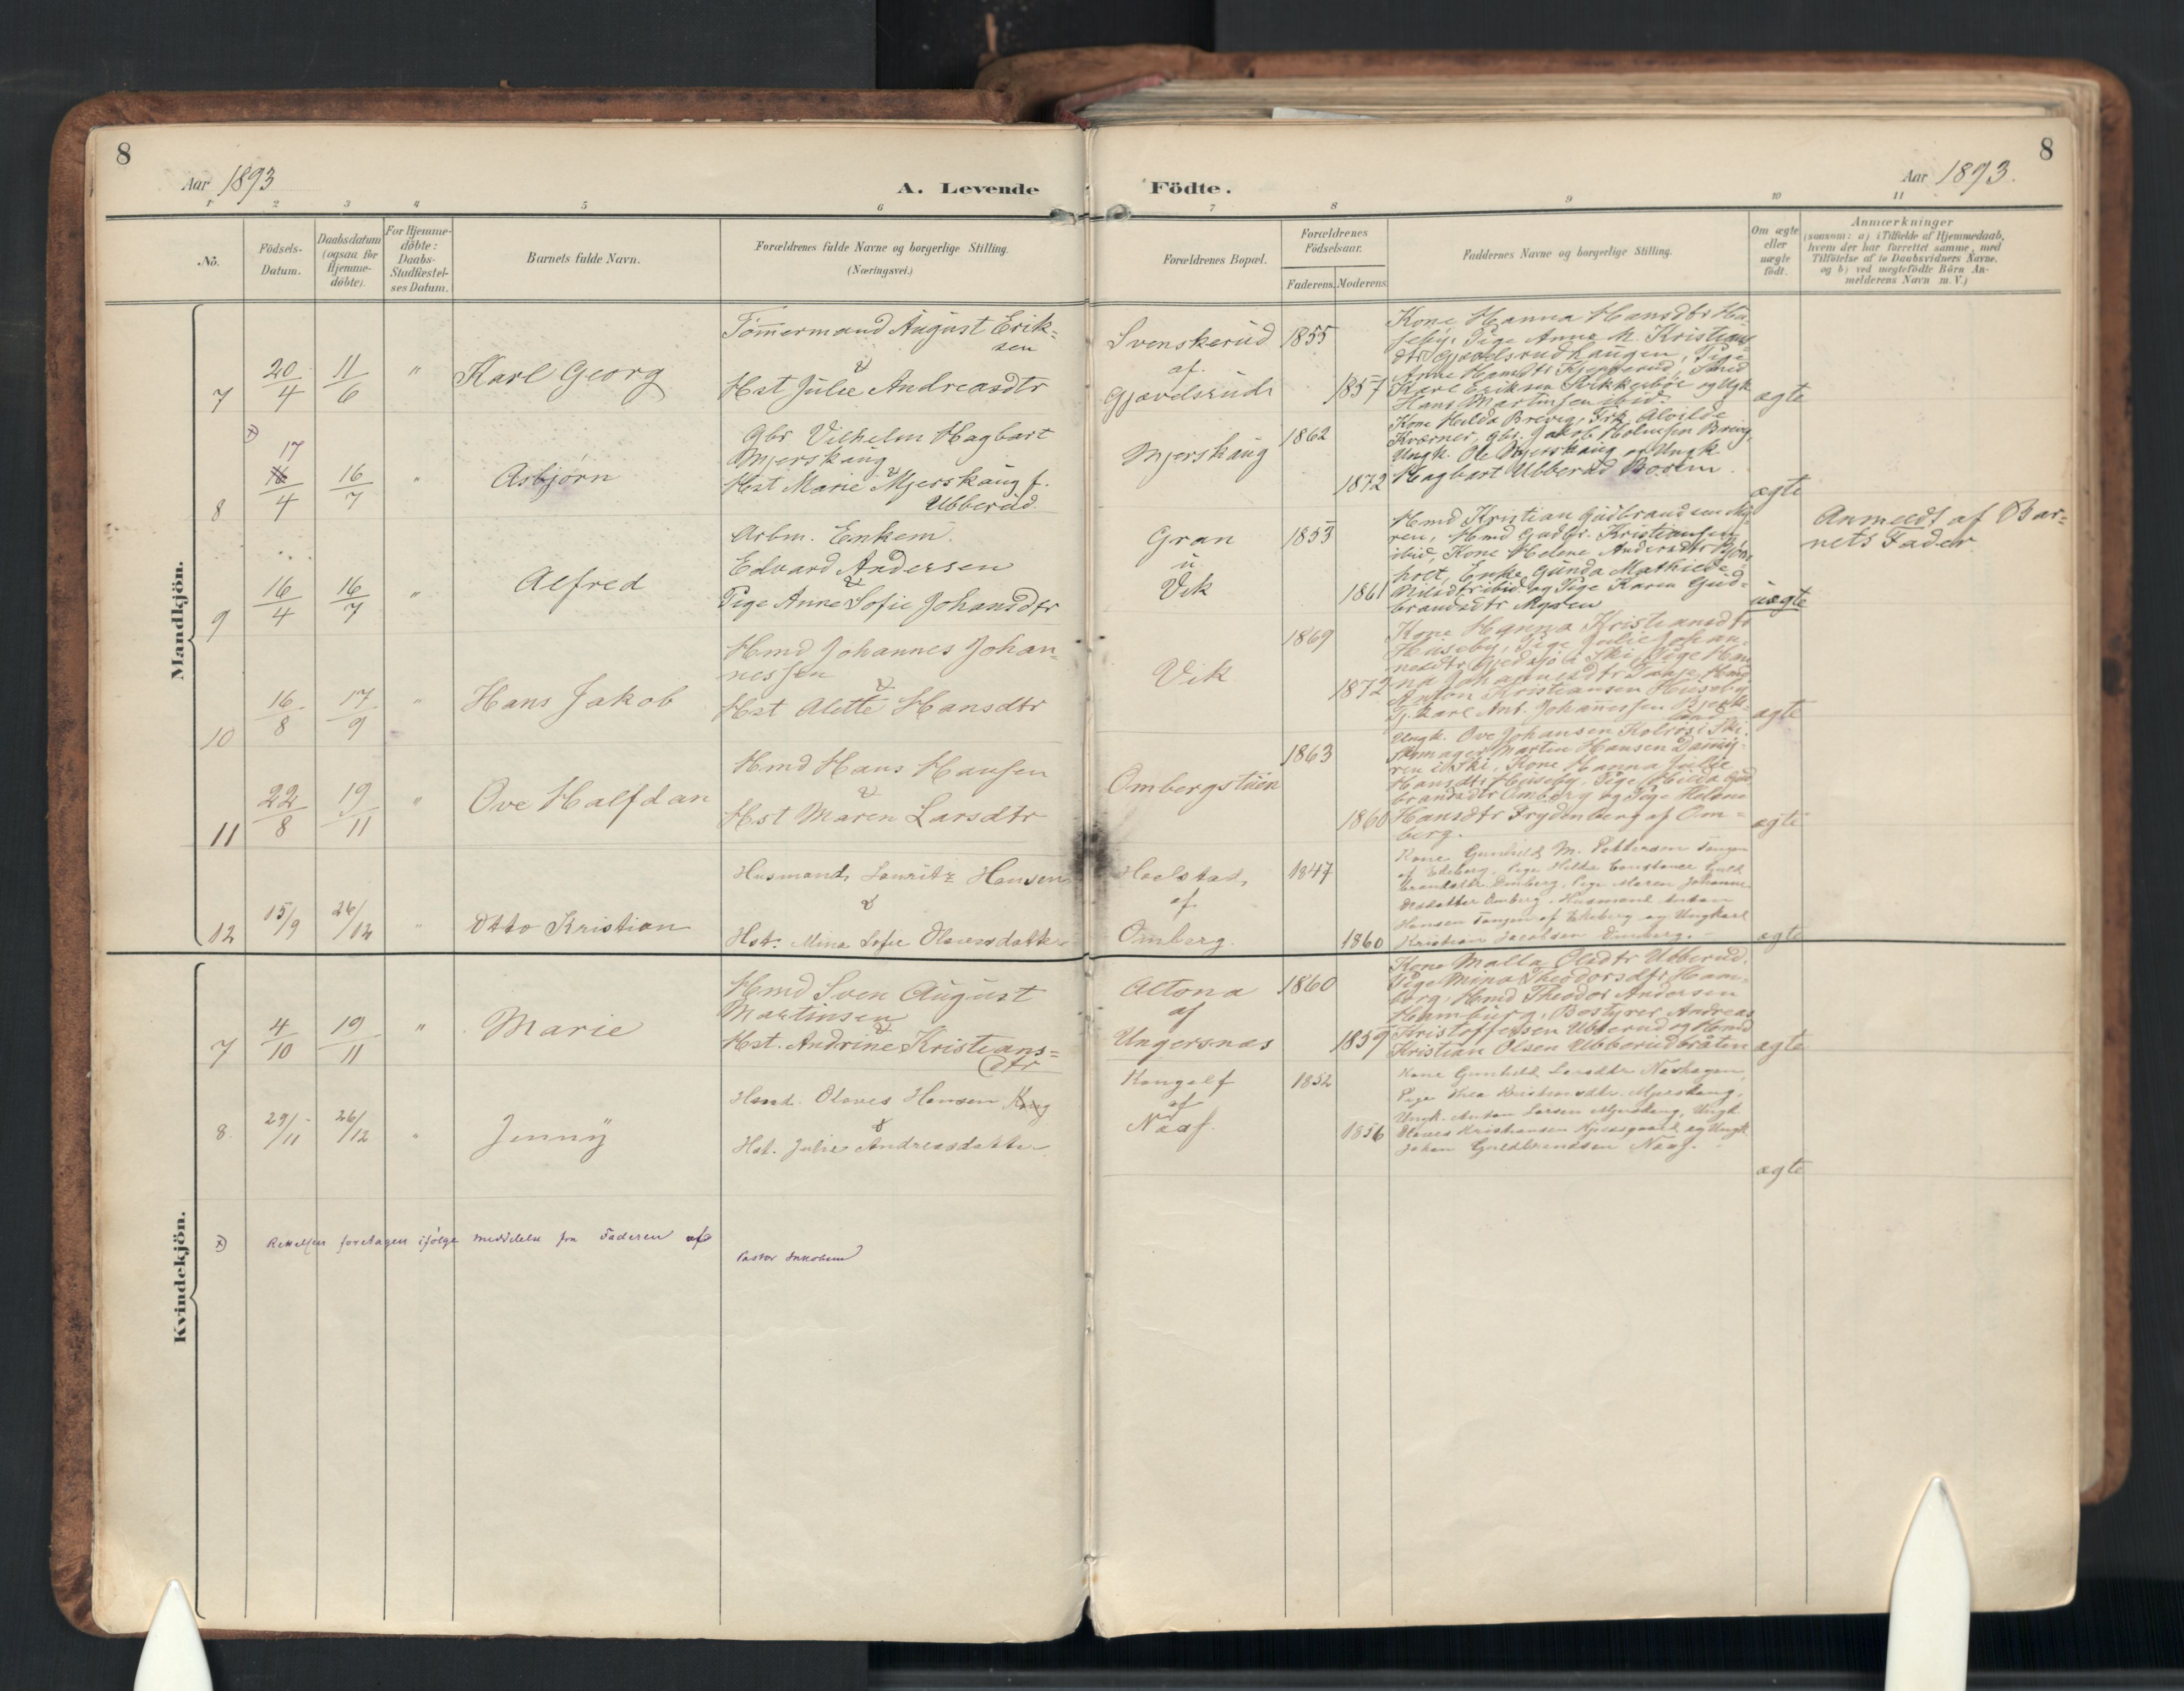 8
Aar 1893
A. Levende Födte.
8
Aar 1893.
1 2 3 4 5 6 7 8 9 10 11
No.
Födsels-Datum.
Daabsdatum (ogsaa for Hjemme-döbte).
For Hjemme-döbte: Daabs-Stadfæstel-ses Datum.
Barnets fulde Navn.
Forældrenes fulde Navne og borgerlige Stilling.
(Næringsvei.)
Forældrenes Bopæl.
Forældrenes Födselsaar.
Faderens. Moderens.
Faddernes Navne og borgerlige Stilling.
Om ægte eller uægte födt.
Anmærkninger
(saasom: a) i Tilfælde af Hjemmedaab,
hvem der har forrettet samme, med
Tilföielse af to Daabsvidners Navne.
og b) ved uægtefödte Börn An-
melderens Navn m. V.)
Mandkjön.
7 20/4 11/6 " Karl Georg
Tömmermand August Erik-
sen
&
Hst Julie Andreasdtr
Svenskerud
af
Gjævelsrud
1855
1857
Kone Hanna Hansdtr Hu-
seby, Pige Anne M. Kristians-
dtr Gjævelsrudhaugen, Pige
Anne Hansdtr Kjepperud, Smed
Karl Eriksen Svikkebøl og Ugk
Hans Martinsen ibid.
ægte
8 x) 17 16/4 16/7 " Asbjørn
Gbr Vilhelm Hagbart
Mjerskaug
&
Hst Marie Mjerskaug f.
Ubberud
Mjerskaug
1862
1872
Kone Hilda Brevig, Frk Alvilde
Kværner, gbr. Jakob Holmsen Brevig,
Ungk. Ole Mjerskaug og Ungk
Hagbart Ubberud Bosim.
ægte
9 16/4 16/7 " Alfred
Arbm. Enkem.
Edvard Andersen
&
Pige Anne Sofie Johansdtr
Gran
u.
Vik
1853
1861
Hmd Kristian Gudbrandsen My-
ren, Hmd Gudbr. Kristiansen
ibid, Kone Helene Andersdtr Bjøn-
holt, Enke Gunda Mathilde
Nilsdtr ibid. og Pige Karen Gud-
brandsdtr Myren
uægte
Anmeldt af Bar-
nets Fader
10 16/8 17/9 " Hans Jakob
Hmd Johannes Johan-
nessen
&
Hst Alette Hansdtr
Vik
1869
1872
Kone Hanna Kristiansdtr
Huseby, Pige Julie Johan-
nesdtr Gjedsjø i Ski, Pige Han-
na Johannesdtr Taraje, Hmd
Anton Kristiansen Huseby
Tj. Karl Ant. Johannessen Bjerke-
land
ægte
11 22/8 19/11 " Ove Halfdan
Hmd Hans Hansen
&
Hst Maren Larsdtr
Ombergstuen
1863
1860
Ungk. Ove Johansen Kolrøs i Ski.
Skomager Martin Hansen Dammy-
ren i Ski, Kone Hanna Julie
Hansdtr Huseby, Pige Hilda Gud-
brandsdtr Omberg og Pige Helene
Hansdtr Frydenberg af Om-
berg.
ægte
12 15/9 26/12 " Otto Kristian
Husmand Lauritz Hansen
&
Hst. Mina Sofie Olavesdatter
Haelstad
af
Omberg.
1847
1860
Kone Gunhild M. Pettersen Tangen
af Ekeberg, Pige Hilda Constance Guld-
brandsdtr Omberg, Pige Maren Johanne
Olsdatter Omberg, Husmand Anton
Hansen Tangen af Ekeberg og Ungkarl
Kristian Jacobsen Omberg. -
ægte
Kvindekjön.
7 4/10 19/11 " Marie
Hmd Sven August
Martinsen
&
Hst. Andrine Kristians-
dtr
Altona
af
Ungersnæs
1860
1859
Kone Malla Olsdtr Ubberud.
Pige Mina Theodorsdtr Ham-
borg, Hmd Theodor Andersen
Hamburg, Bestyrer Andreas
Kristoffersen Ubberud og Hmd
Kristian Olsen Ubberudbråten
ægte
8. 29/11 26/12 " Jenny
Hmd. Olaves Hansen
&
Hst. Julie Andreasdatter
Kongelf
af
Naaf.
1852
1856
Kone Gunhild Larsdtr Næshagen,
Pige Thea Kristiansdtr. Mjerskaug,
Ungk. Anton Larsen Mjerskaug, Ungk.
Olaves Kristiansen og Ungk
Johan Guldbrandsen Naaf.
ægte
x) Rettelsen foretagen ifölge meddelelse fra Faderen af Pastor Jakobsen